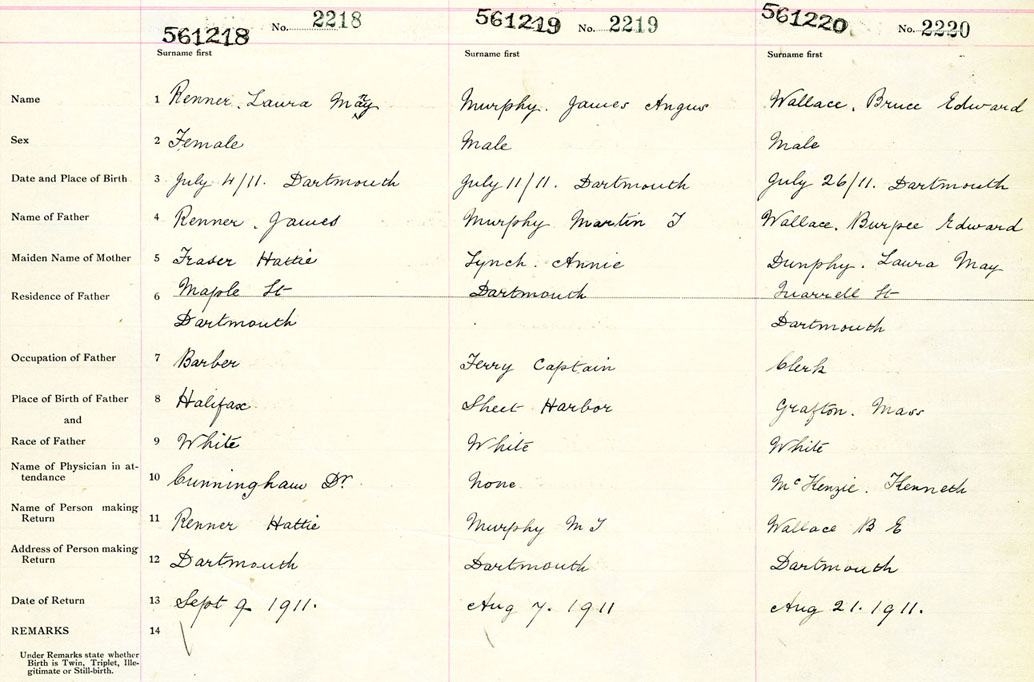 561218 No. 2218 561219 No. 2219 561220 No. 2220
Surname first Surname first Surname first
Name 1 Renner, Laura May Murphy. James Angus Wallace. Bruce Edward
Sex 2 Female Male Male
Date and Place of Birth 3 July 4/11. Dartmouth July 11/11. Dartmouth July 26/11. Dartmouth
Name of Father 4 Renner. James Murphy Martin J Wallace. Burpee Edward
Maiden Name of Mother 5 Fraser Hattie Lynch. Annie Dunphy. Laura May
Residence of Father 6 Maple St Dartmouth St
Dartmouth Dartmouth
Occupation of Father 7 Barber Ferry Captain Clerk
Place of Birth of Father 8 Halifax Sheet Harbor Grafton. Mass
and
Race of Father 9 White White White
Name of Physician in at-
tendance 10 Cunningham Dr. None McKenzie. Kenneth
Name of Person making
Return 11 Renner Hattie Murphy M J Wallace B E
Address of Person making
Return 12 Dartmouth Dartmouth Dartmouth
Date of Return 13 Sept 9 1911. Aug 7. 1911 Aug 21. 1911.
REMARKS 14
Under Remarks state whether
Birth is Twin, Triplet, Ille-
gitimate or Still-birth.